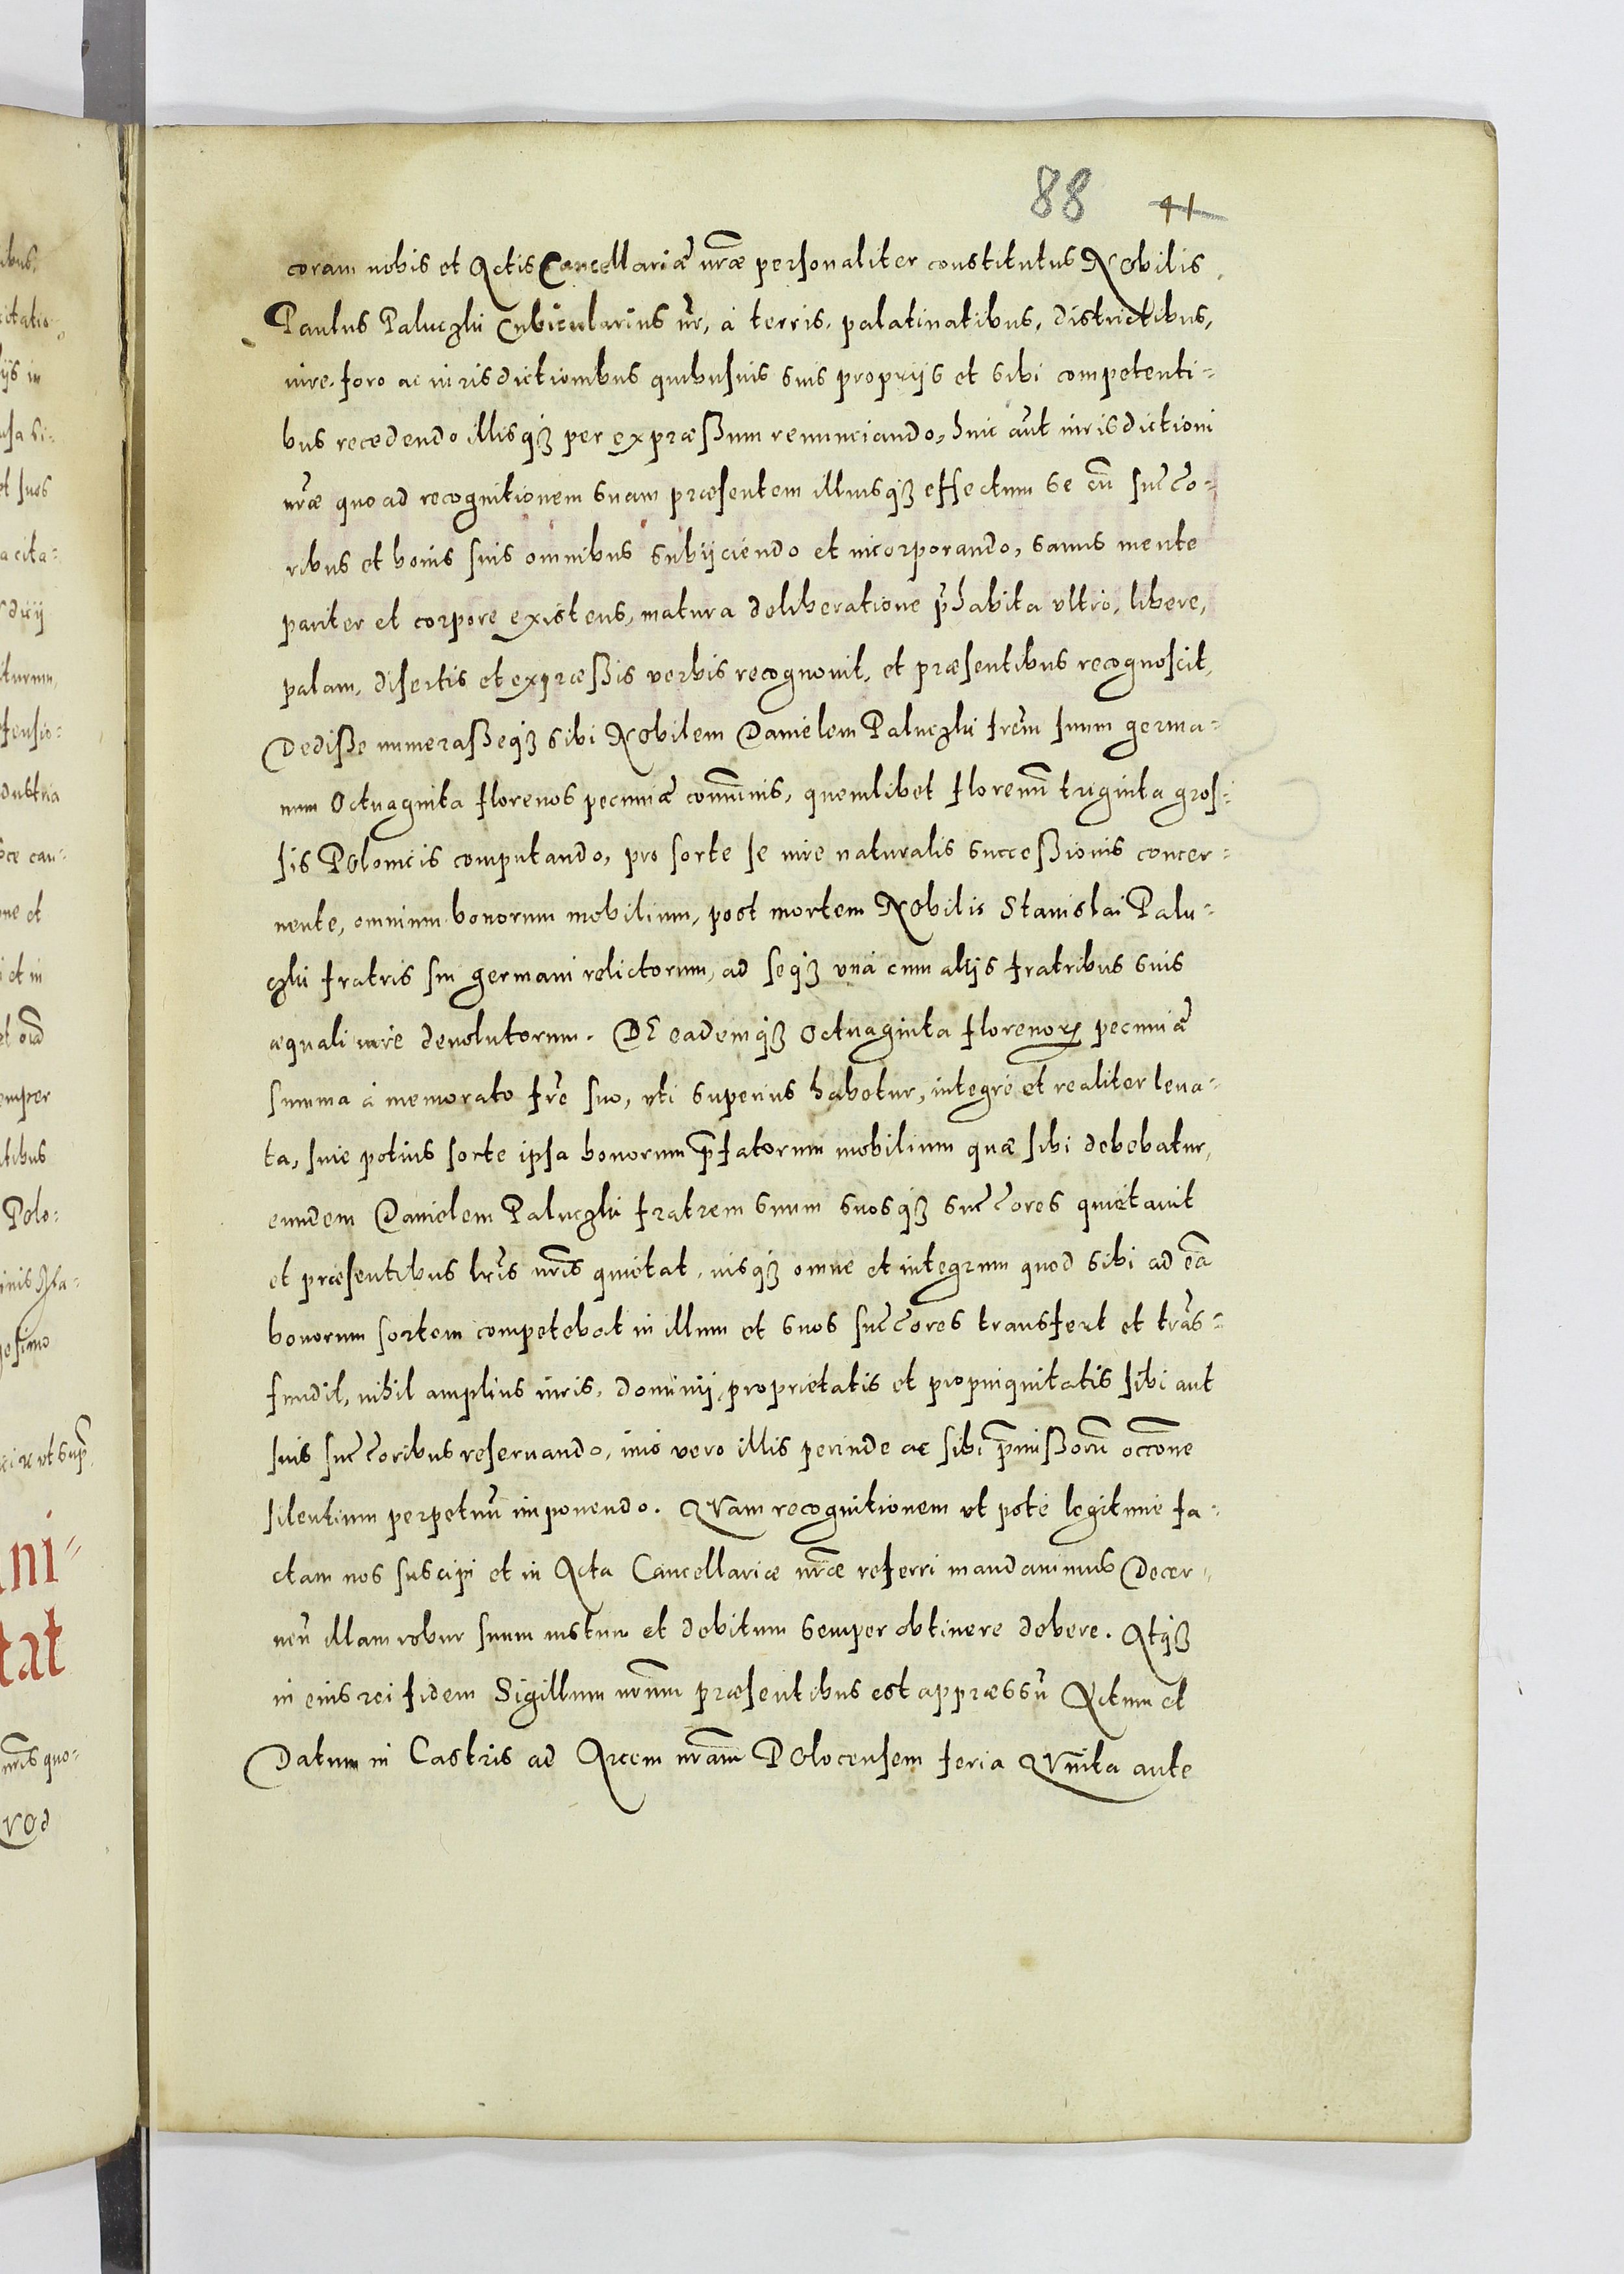 88 41
coram nobis et Actis Cancellariæ nr̃æ personaliter constitutus Nobilis
Paulus Paluczki Cubicularius nr̃, à terris, palatinatibus, districtibus,
iure, foro ac iurisdictionibus quibusuis suis proprijs et sibi competenti=
bus recedendo illisq́ʒ per expræßum renunciando, huic aũt iurisdictioni
nr̃æ quo ad recognitionem suam præsentem illiusq́ʒ effectum se cũ succ̃o=
ribus et bonis suis omnibus subijciendo et incorporando, sanus mente
pariter et corpore existens, matura deliberatione p̃habita vltrò, libere,
palam, disertis et expræßis verbis recognouit, et præsentibus recognoscit,
Dediße numeraßeq́ʒ sibi Nobilem Danielem Paluczki frẽm suum germa=
num Octuaginta florenos pecuniæ com̃unis, quemlibet florenũ triginta gros=
sis Polonicis computando, pro sorte se iure naturalis succeßionis concer=
nente, omnium bonorum mobilium, post mortem Nobilis Stanislai Palu=
czki fratris sui germani relictorum, ad seq́ʒ vnà cum alijs fratribus suis
æquali iure deuolutorum. DE eademq́ʒ Octuaginta florenorꝝ pecuniæ
summa à memorato frẽ suo, vti superius habetur, integrè et realiter leua=
ta, siue potius sorte ipsa bonorum p̃fatorum mobilium quæ sibi debebatur,
eundem Danielem Paluczki fratrem suum suosq́ʒ succ̃ores quietauit
et præsentibus lr̃is nr̃is quietat, iusq́ʒ omne et integrum quod sibi ad eã
bonorum sortem competebat in illum et suos succ̃ores transfert et trãs=
fundit, nihil amplius iuris, dominij, proprietatis et propinquitatis sibi aut
suis succ̃oribus reseruando, imò vero illis perinde ac sibi p̃mißorũ occ̃one
silentium perpetuũ imponendo. QVam recognitionem vt potè legitimè fa=
ctam nos suscipi et in Acta Cancellariæ nr̃æ referri mandauimus Decer=
neñ illam robur suum iustum et debitum semper obtinere debere. Atq́ʒ
in eius rei fidem Sigillum nr̃um præsentibus est appræssũ Actum et
Datum in Castris ad Arcem nr̃am POlocensem feria QVinta ante